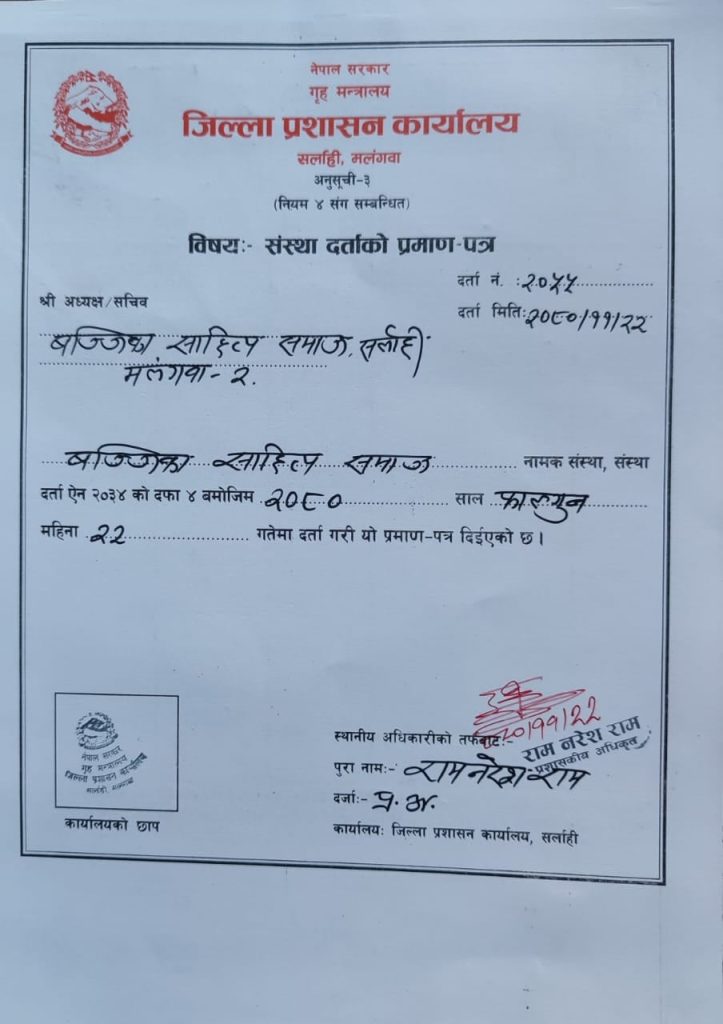 नेपाल सरकार
गृह मन्त्रालय
जिल्ला प्रशासन कार्यालय
सर्लाही, मलंगवा
अनुसूची-३
(नियम ४ संग सम्बन्धित)
विषयः- संस्था दर्ताको प्रमाण-पत्र
दर्ता नं. : २०५५
श्री अध्यक्ष/सचिव
दर्ता मितिः २०८०/११/२२
बज्जिका साहित्य समाज, सर्लाही
मलंगवा - २.
बज्जिका साहित्य समाज नामक संस्था, संस्था
दर्ता ऐन २०३४ को दफा ४ बमोजिम २०८० साल फाल्गुन
महिना २२ गतेमा दर्ता गरी यो प्रमाण-पत्र दिईएको छ।
नेपाल सरकार
गृह मन्त्रालय
जिल्ला प्रशासन कार्यालय
सर्लाही, मलंगवा
कार्यालयको छाप
स्थानीय अधिकारीको तर्फबाटः-
राम नरेश राम
प्रशासकीय अधिकृत
पुरा नामः- रामनरेश राम
दर्जाः- प्र. अ.
कार्यालयः जिल्ला प्रशासन कार्यालय, सर्लाही